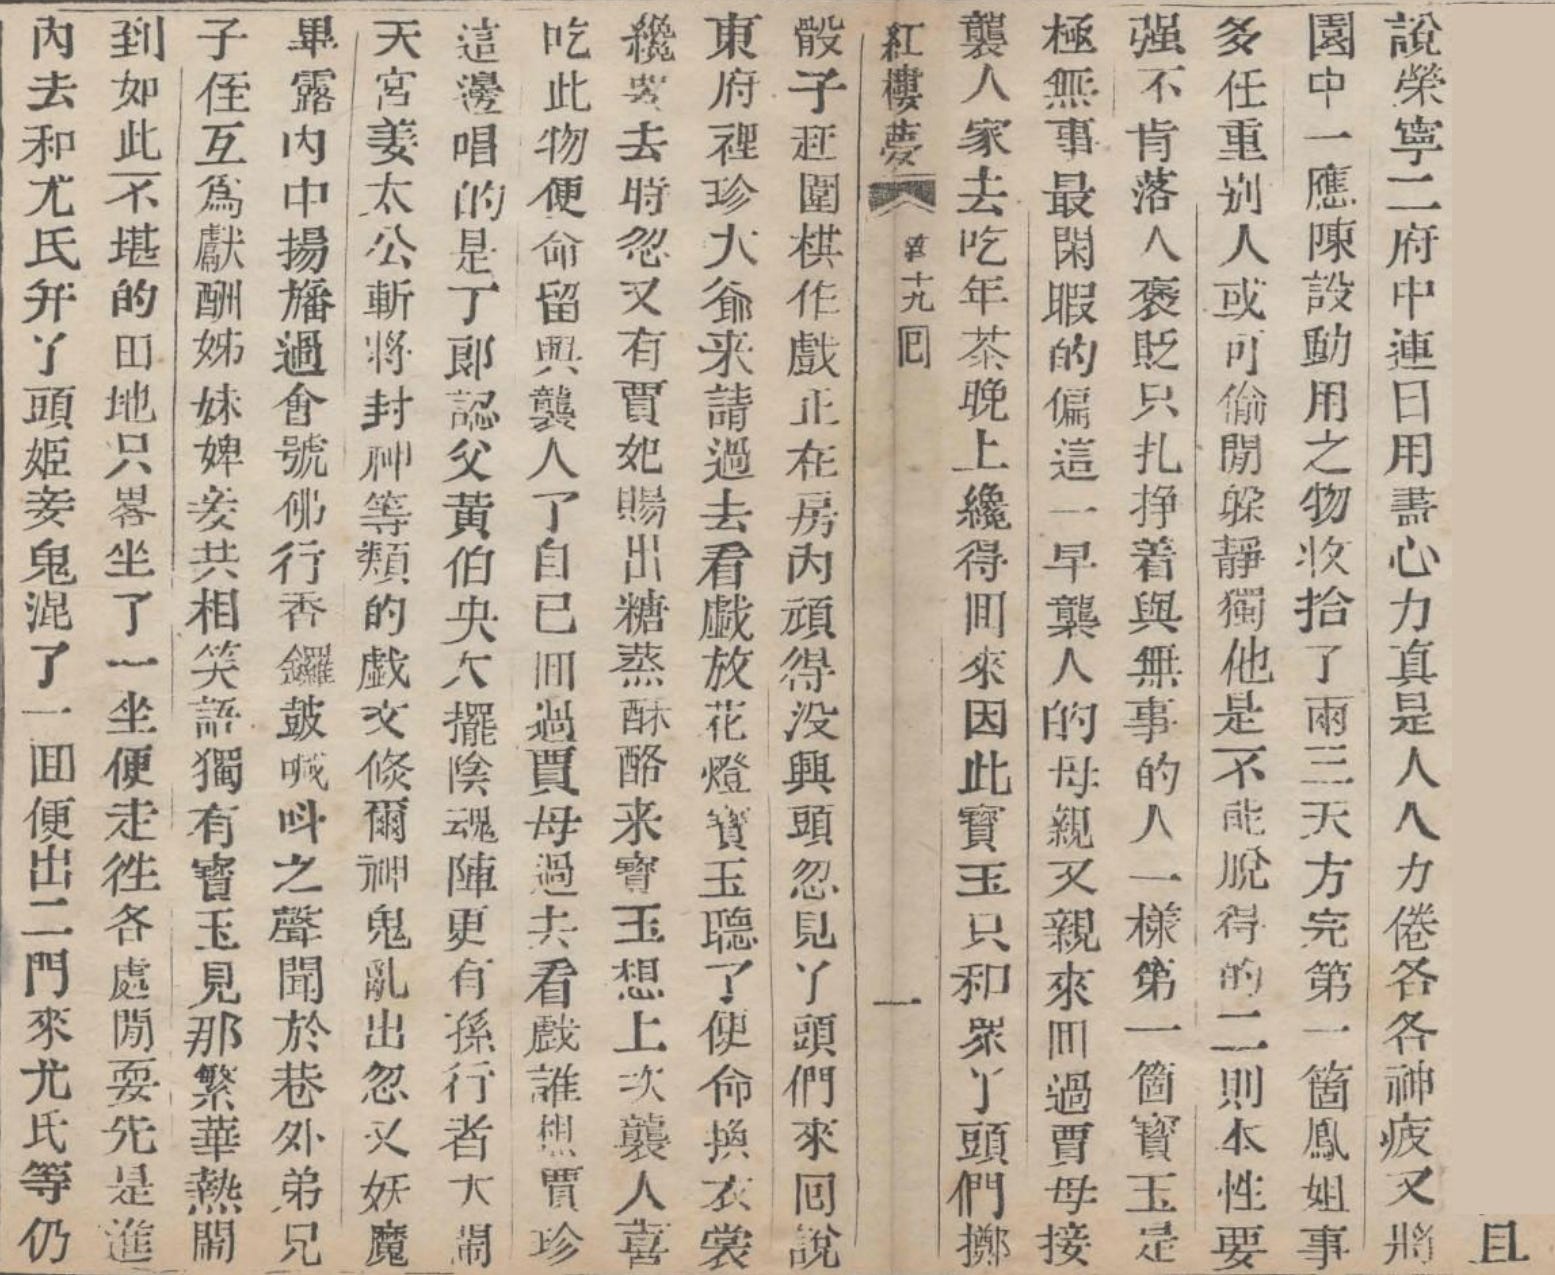 且
說榮寧二府中連日用盡心力真是人人力倦各各神疲又將
園中一應陳設動用之物收拾了兩三天方完第一箇鳳姐事
多任重别人或可偷閒躲靜獨他是不能脫得的二則本性要
强不肯落人褒貶只扎掙着與無事的人一樣第一箇寶玉是
極無事最閑暇的偏這一早襲人的母親又親來囬過賈母接
襲人家去吃年茶晚上纔得囬來因此寶玉只和眾丫頭們擲
紅樓夢 第十九回 一
骰子赶圍棋作戲正在房内頑得没興頭忽見丫頭們來回說
東府裡珍大爺来請過去看戯放花燈寶玉聽了便命換衣裳
纔要去時忽又有賈妃賜出糖蒸酥酪来寶玉想上次襲人喜
吃此物便命留與襲人了自已囬過賈母過去看戲誰想賈珍
這邊唱的是丁郎認父黄伯央大擺陰魂陣更有孫行者大鬧
天宮姜太公斬将封神等類的戯文倐爾神鬼亂出忽又妖魔
畢露内中揚旛過會號佛行香鑼鼓喊呌之聲聞於巷外弟兄
子侄互爲獻酬姊妹婢妾共相笑語獨有寶玉見那繁華熱鬧
到如此不堪的田地只畧坐了一坐便走徃各處閒耍先是進
内去和尤氏并丫頭姬妾鬼混了一囬便出二門來尤氏等仍